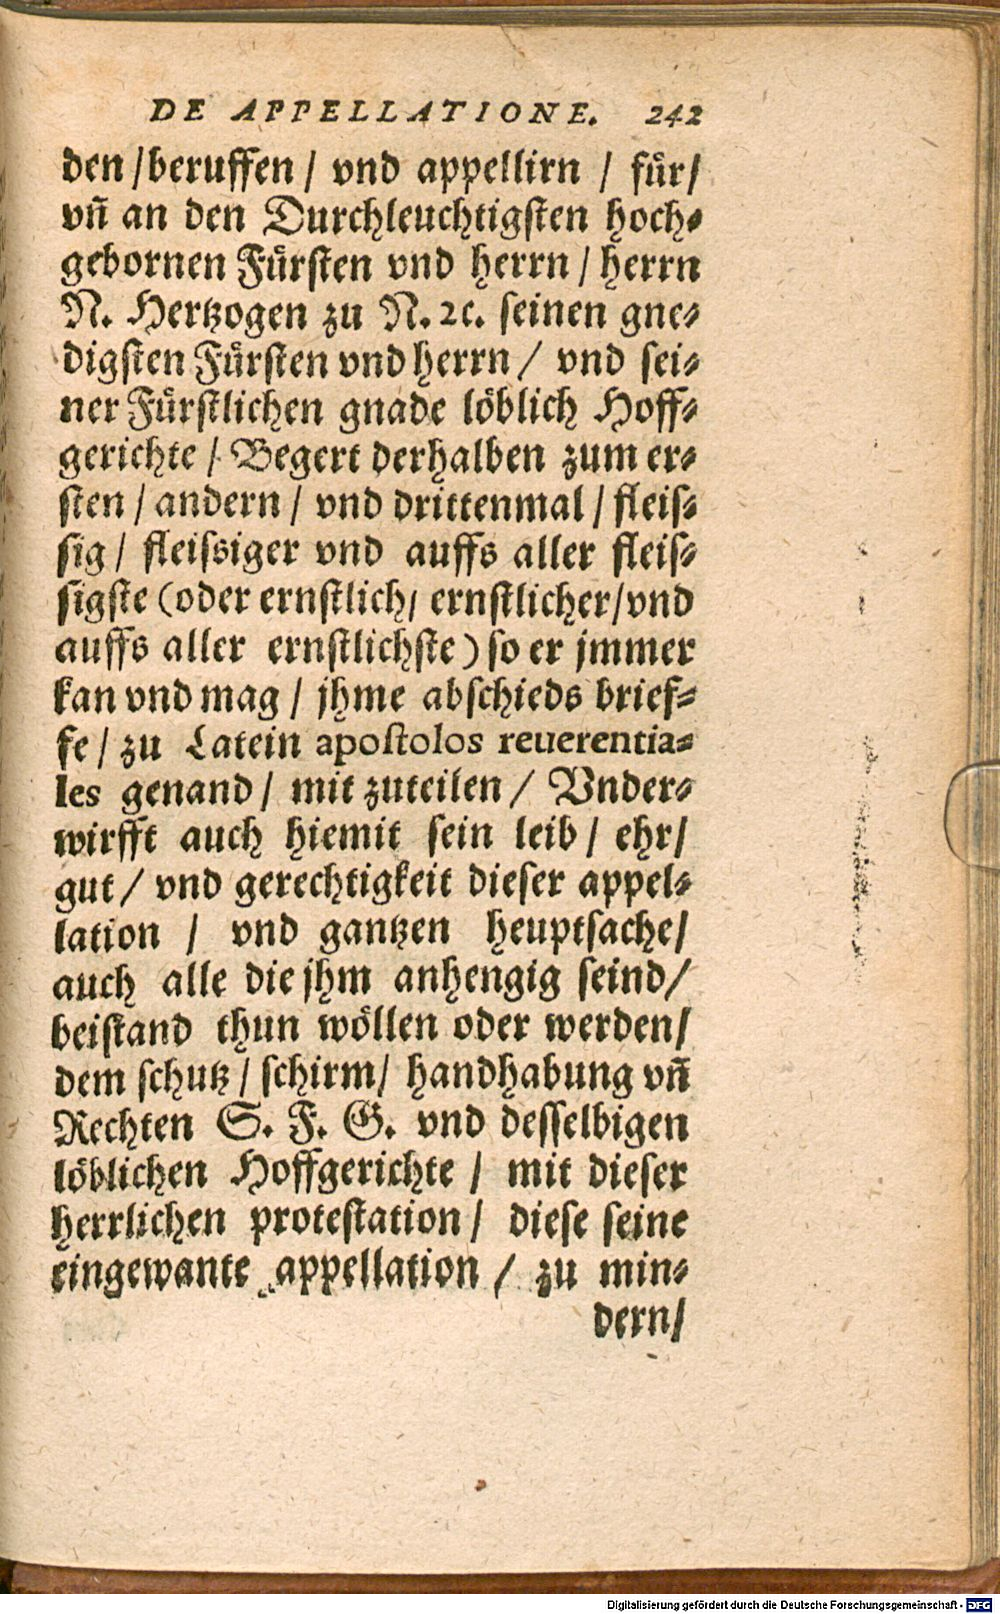 DE APPELLATIONE. 242
den / beruffen / vnd appellirn / für /
vn̄ an den Durchleuchtigsten hoch⸗
gebornen Fürsten vnd herrn / herrn
N. Hertzogen zu N. ꝛc. seinen gne⸗
digsten Fürsten vnd herrn / vnd sei⸗
ner Fürstlichen gnade löblich Hoff⸗
gerichte / Begert derhalben zum er⸗
sten / andern / vnd drittenmal / fleis⸗
sig / fleissiger vnd auffs aller fleis⸗
sigste (oder ernstlich / ernstlicher / vnd
auffs aller ernstlichste) so er jmmer
kan vnd mag / jhme abschieds brief⸗
fe / zu Latein apostolos reuerentia⸗
les genand / mit zuteilen / Vnder⸗
wirfft auch hiemit sein leib / ehr /
gut / vnd gerechtigkeit dieser appel⸗
lation / vnd gantzen heuptsache /
auch alle die jhm anhengig seind /
beistand thun wöllen oder werden /
dem schutz / schirm / handhabung vn̄
Rechten S. F. G. vnd desselbigen
löblichen Hoffgerichte / mit dieser
herrlichen protestation / diese seine
eingewante appellation / zu min⸗
dern /
Digitalisierung gefördert durch die Deutsche Forschungsgemeinschaft - DFG